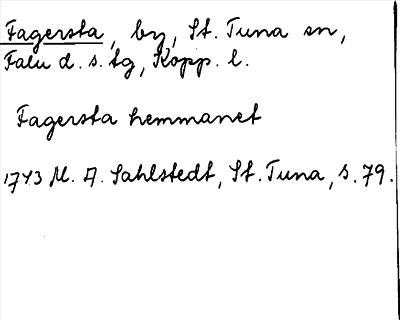 Fagersta, by, St. Tuna sn,
Falu d. s. tg, Kopp. l.
Fagersta hemmanet
1743 M. A. Sahlstedt, St. Tuna, s. 79.